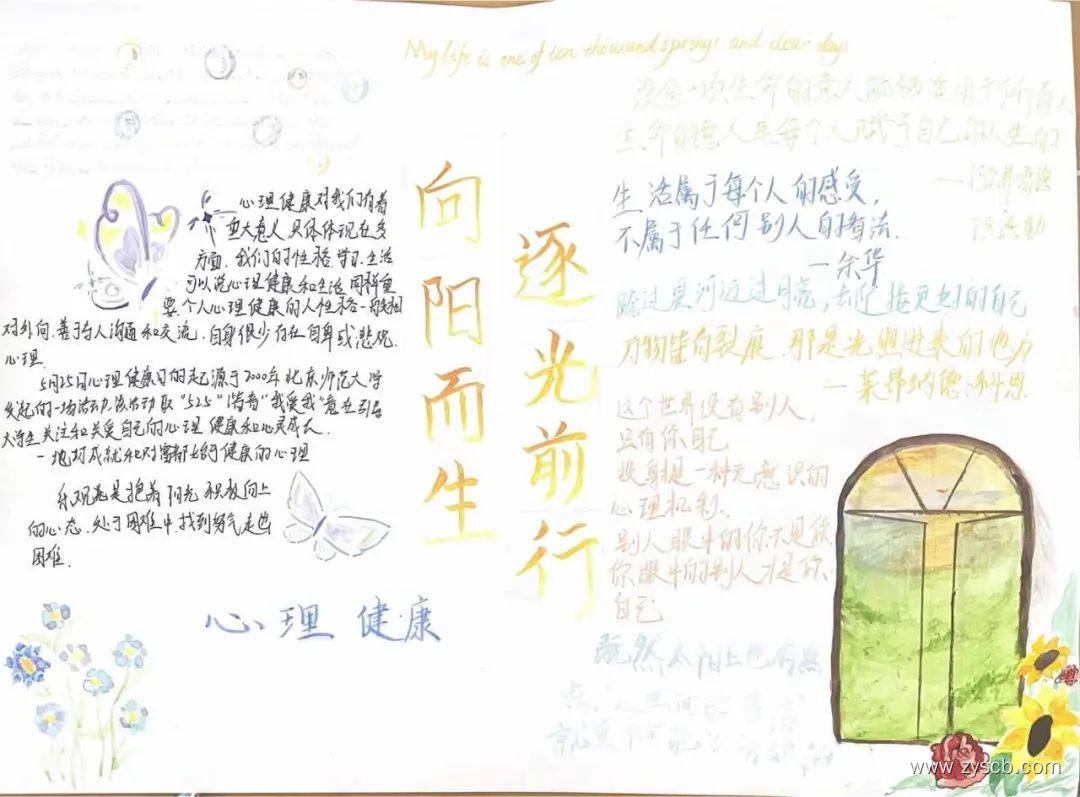 My life is one of ten thousand springs and clear days
心理健康对我们有着
重大意义具体体现在多
方面，我们的性格 学习 生活
可以说心理健康和生活同样重
要 个人心理健康的人性格一般相
对外向，善于与人沟通和交流，自身很少存在自卑或悲观
心理
5月25日心理健康日的起源于2000年北京师范大学
发起的一场活动，该活动取"525""谐音"我爱我"意在引导
大学生关注和关爱自己的心理健康和心灵成长
乐观总是抱着阳光积极向上
的心态，处于困难中，找到勇气走出
困难
心理健康
向阳而生
逐光前行
生活属于每个人的感受，
不属于任何别人的看法.
—余华
踏过星河迈过月亮，去迎接更好的自己
万物皆有裂痕，那是光照进来的地方
—莱昂纳德·科恩
这个世界没有别人，
只有你自己
投身是一种无意识的
心理机制.
别人眼中的你不是你
你眼中的别人才是你
自己
既然太阳上也有黑
www.zyscb.com